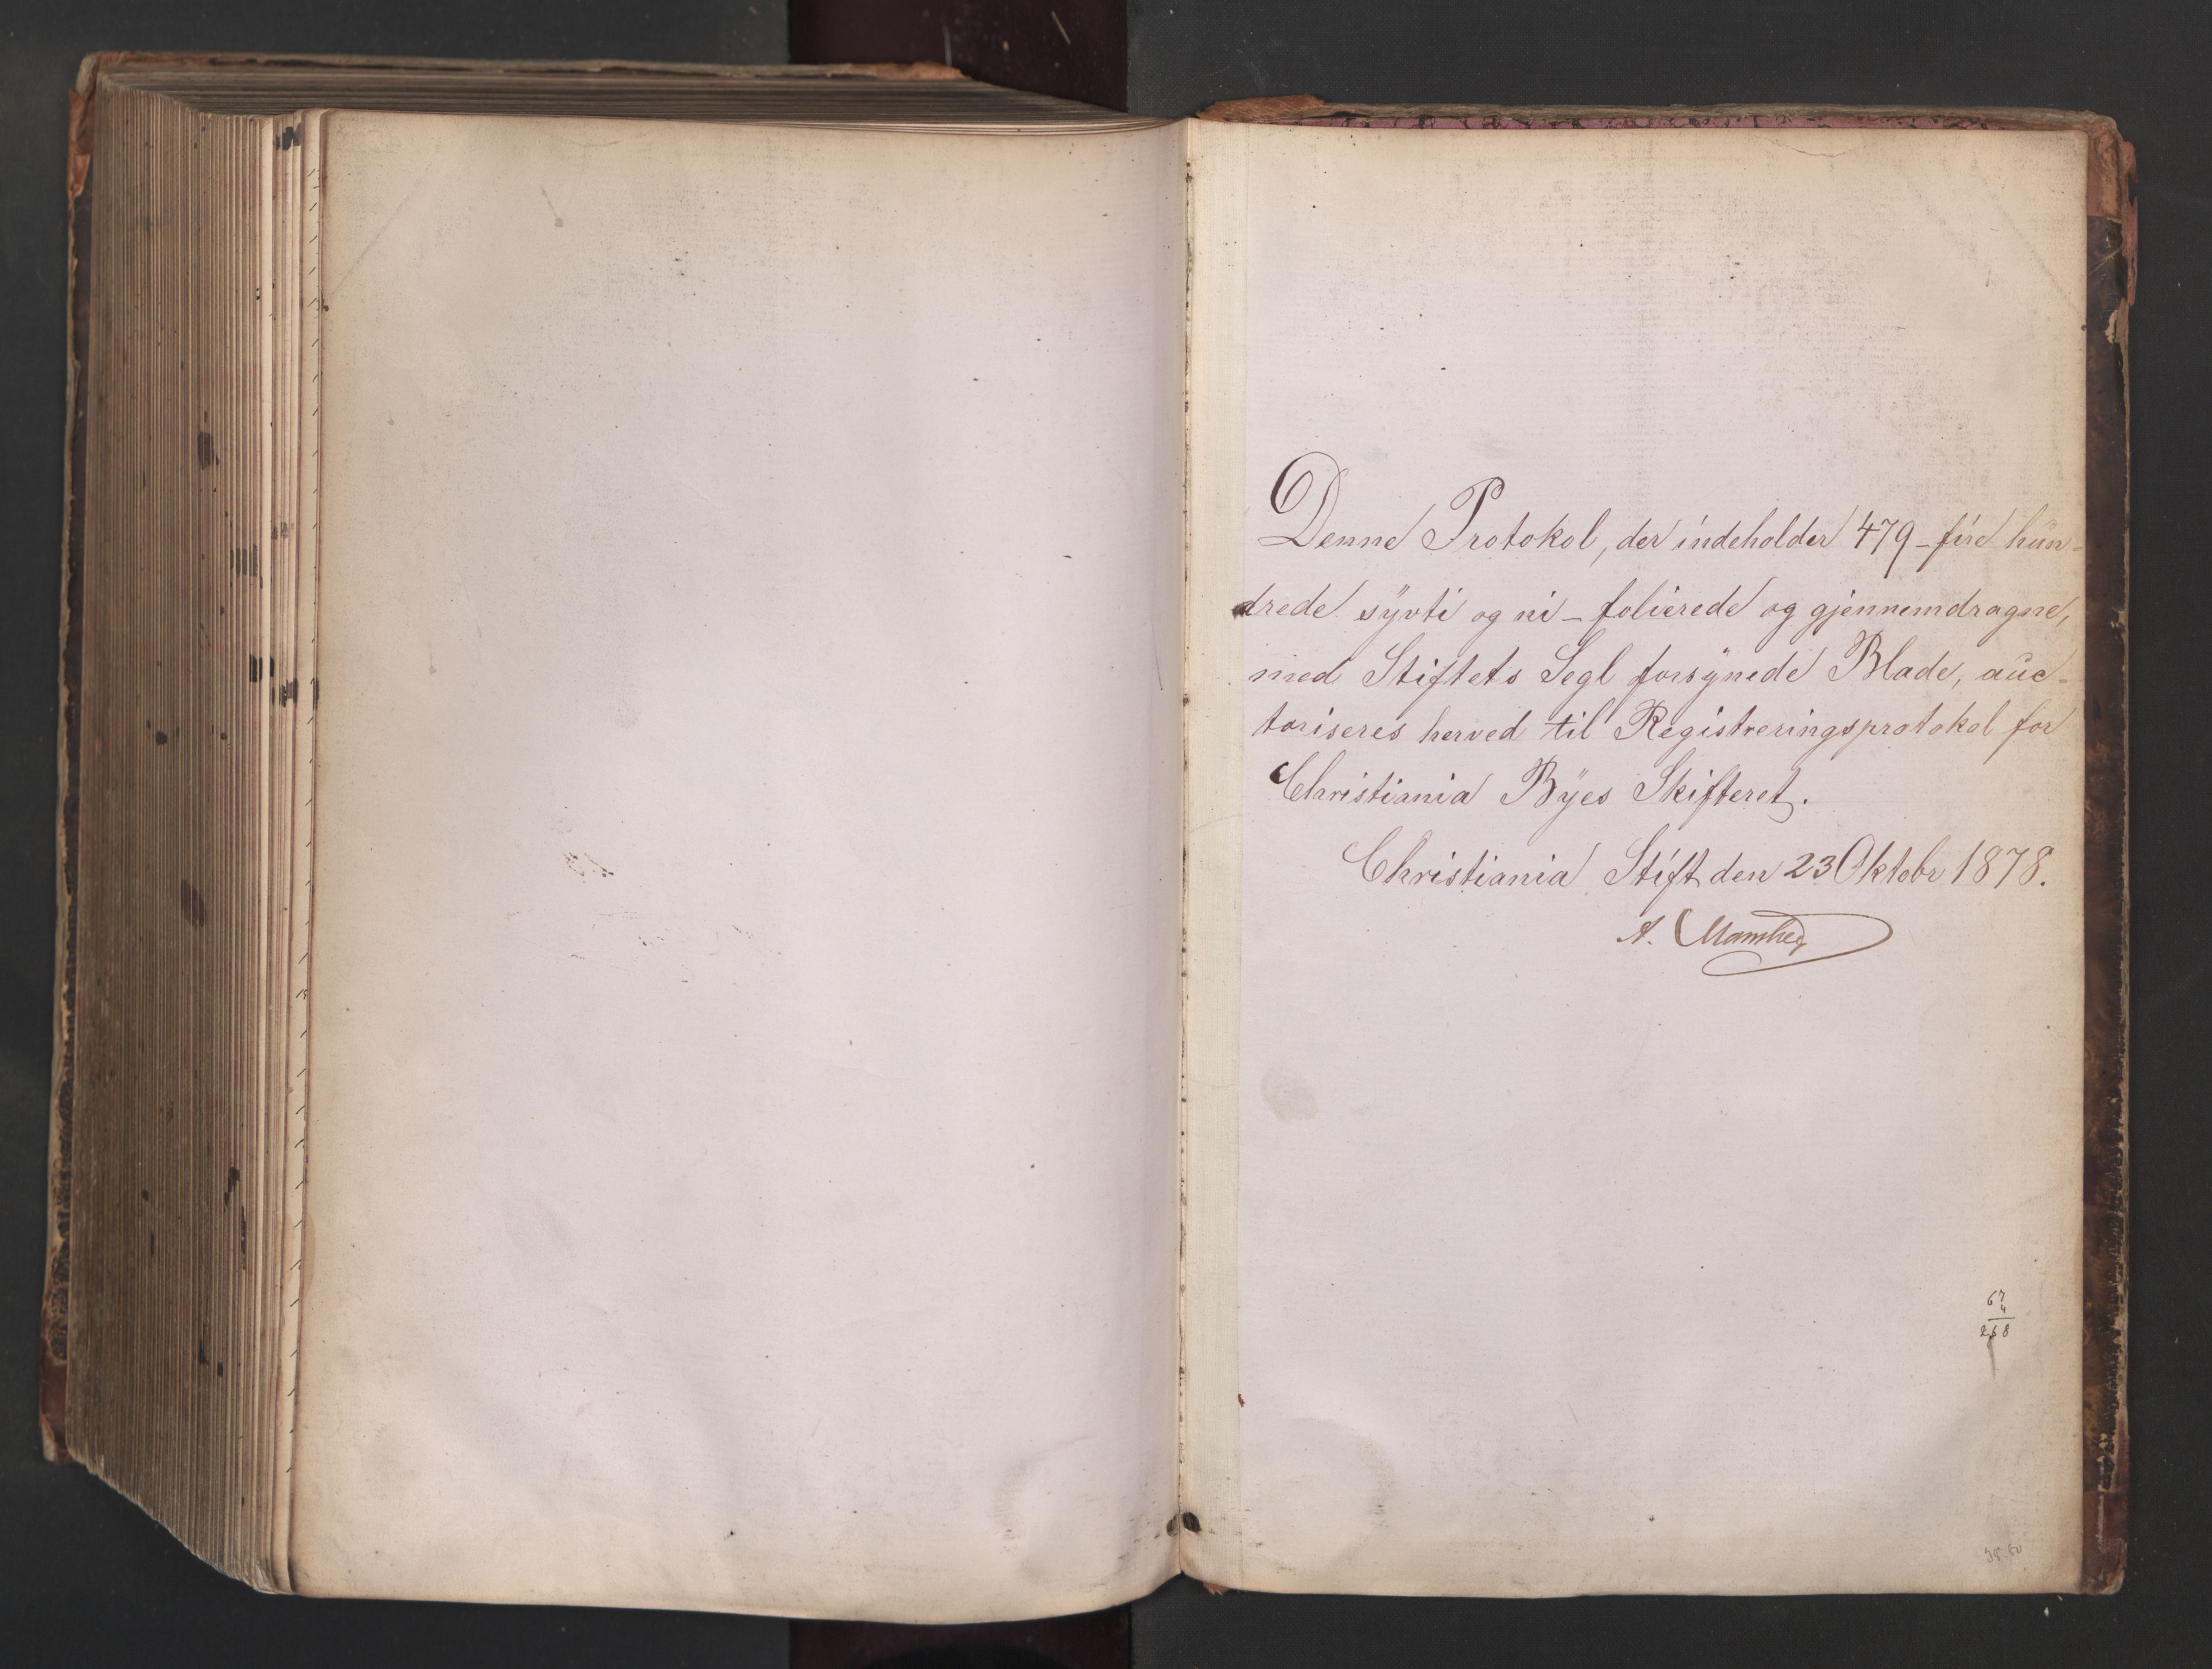 Denne Protokol, der indeholder 479 - fire hun-
drede syvti og ni - folierede og gjennemdragne,
med Stiftets Segl forsynede Blade, auc-
toriseres herved til Registreringsprotokol for
Christiania Byes Skifteret.
Christiania Stift den 23 Oktobr 1878.
A.
67
4
268